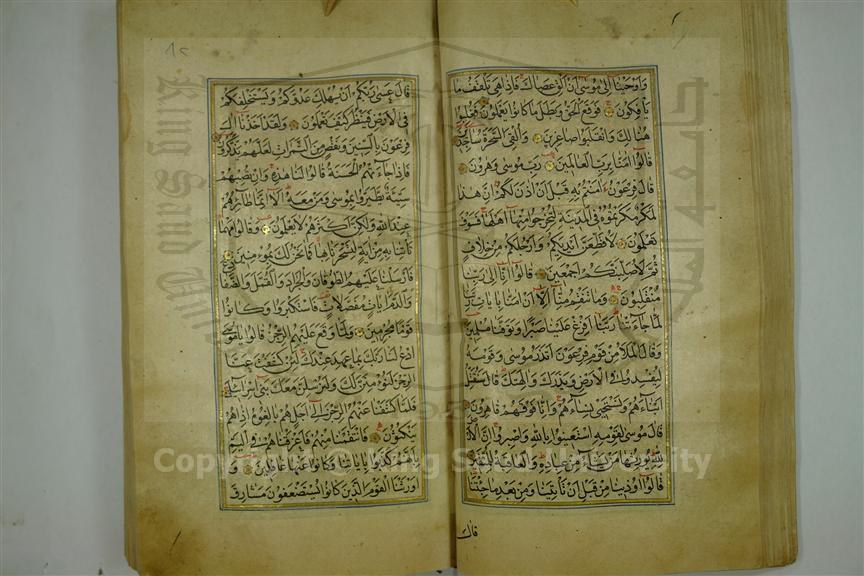 واوحينا الى موسى ان الق عصاك فاذا هي تلقف ما
يافكون فوقع الحق وبطل ما كانوا يعملون فغلبوا
هنالك وانقلبوا صاغرين والقي السحرة ساجدين
قالوا امنا برب العالمين رب موسى وهرون
قال فرعون امنتم به قبل ان اذن لكم ان هذا
لمكر مكرتموه في المدينة لتخرجوا منها اهلها فسوف
تعلمون لاقطعن ايديكم وارجلكم من خلاف
ثم لاصلبنكم اجمعين قالوا انا الى ربنا
منقلبون وما تنقم منا الا ان امنا بايات ربنا
لما جاءتنا ربنا افرغ علينا صبرا وتوفنا مسلمين
وقال الملا من قوم فرعون اتذر موسى وقومه
ليفسدوا في الارض ويذرك والهتك قال سنقتل
ابناءهم ونستحيي نساءهم وانا فوقهم قاهرون
قال موسى لقومه استعينوا بالله واصبروا ان الارض
لله يورثها من يشاء من عباده والعاقبة للمتقين
قالوا اوذينا من قبل ان تاتينا ومن بعد ما جئتنا
قال
قال عسى ربكم ان يهلك عدوكم ويستخلفكم
في الارض فينظر كيف تعملون ولقد اخذنا ال
فرعون بالسنين ونقص من الثمرات لعلهم يذكرون
فاذا جاءتهم الحسنة قالوا لنا هذه وان تصبهم
سيئة يطيروا بموسى ومن معه الا انما طائرهم
عند الله ولكن اكثرهم لا يعلمون وقالوا مهما
تاتنا به من اية لتسحرنا بها فما نحن لك بمؤمنين
فارسلنا عليهم الطوفان والجراد والقمل والضفادع
والدم ايات مفصلات فاستكبروا وكانوا
قوما مجرمين ولما وقع عليهم الرجز قالوا يا موسى
ادع لنا ربك بما عهد عندك لئن كشفت عنا
الرجز لنؤمنن لك ولنرسلن معك بني اسرائيل
فلما كشفنا عنهم الرجز الى اجل هم بالغوه اذا هم
ينكثون فانتقمنا منهم فاغرقناهم في اليم
بانهم كذبوا باياتنا وكانوا عنها غافلين
واورثنا القوم الذين كانوا يستضعفون مشارق
Copyright © King Saud University
King Saud University
جامعة الملك سعود